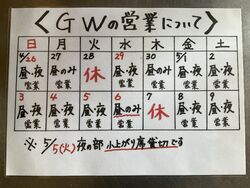 〈GWの営業について〉
日 月 火 水 木 金 土
4/26 27 28 29 30 5/1 2
昼・夜 昼のみ 休 昼・夜 昼・夜 昼・夜 昼・夜
営業 営業 営業 営業 営業 営業
3 4 5 6 7 8 9
昼・夜 昼・夜 昼・夜 昼のみ 休 昼・夜 昼・夜
営業 営業 営業 営業 営業 営業
※ 5/5(火) 夜の部 小上がり席 貸切です